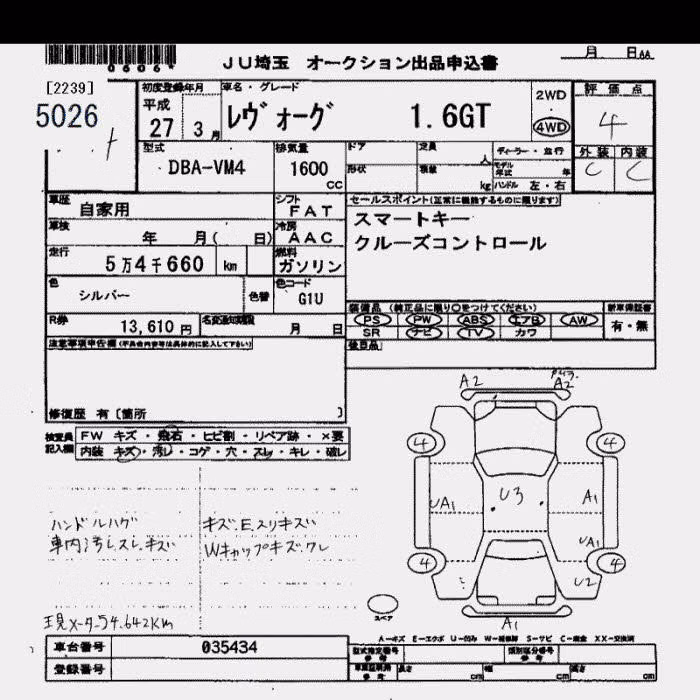 0606*
JU埼玉 オークション出品申込書
月 日AA
[2239]
5026
初度登録年月
平成
27 3 月
車名・グレード
レヴォーグ 1.6GT
2WD
4WD
評価点
4
外装 内装
C C
型式
DBA-VM4
排気量
1600
CC
ドア
定員
人
ディーラー・並行
形状
積載
kg
モデル年式
年
ハンドル 左・右
車歴
自家用
シフト
FAT
車検
年 月( 日)
冷房
AAC
走行
5万4千660 km
燃料
ガソリン
色
シルバー
色替
色コード
G1U
R券
13,610 円
名変通知期限
月 日
セールスポイント(正常に機能するものに限ります)
スマートキー
クルーズコントロール
装備品 (純正品に限り○をつけてください)
PS PW ABS エアB AW
SR ナビ TV カワ
新車保証書
有・無
後日品
注意事項申告欄(不具合内容等は具体的に記入して下さい)
修復歴 有〔箇所 〕
検査員記入欄
FW キズ・飛石・ヒビ割・リペア跡・×要
内装 キズ・汚レ・コゲ・穴・スレ・キレ・破レ
ハンドルハゲ
車内汚レスレ.キズ
キズ.Eスリキズ
Wキャップキズ.ワレ
現メーター54.642Km
A2
A2
4
4
UA1
U3
A1
UA1
4
4
U2
A1
スペア
A-キズ E-エクボ U-凹み W-補修跡 S-サビ C-腐食 XX-交換済
車台番号
035434
登録番号
型式指定番号
参考
類別区分番号
参考
長さ cm
幅 cm
高さ cm